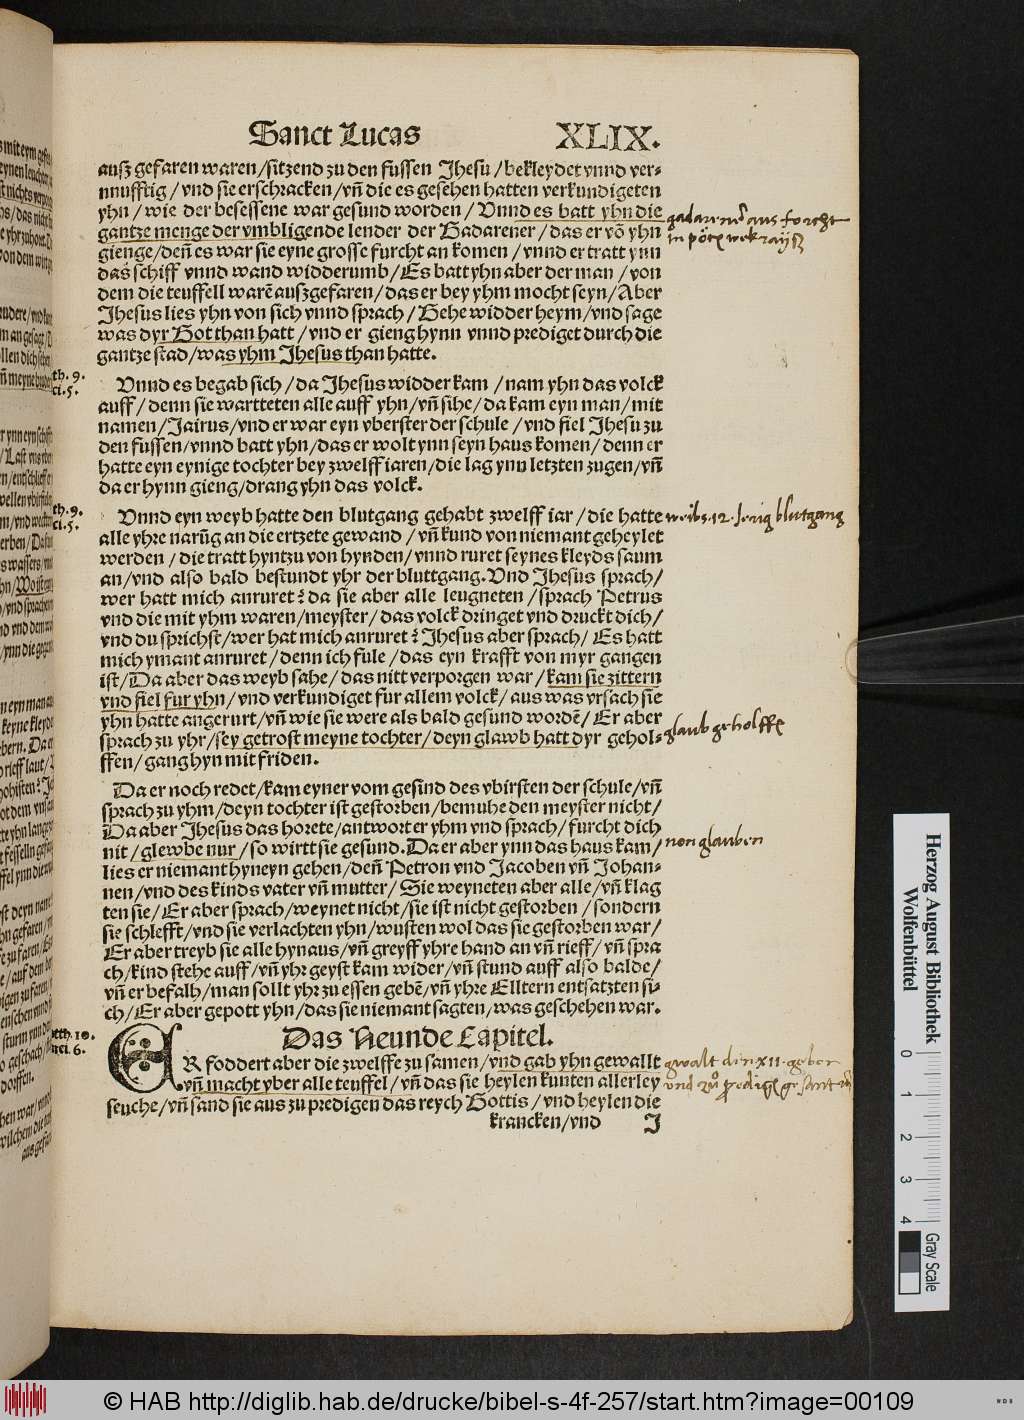 Sanct Lucas XLIX.
ausz gefaren waren/sitzend zu den fussen Jhesu/bekleydet vnnd ver-
nnufftig/vnd sie erschracken/vñ die es gesehen hatten verkundigeten
yhn/wie der besessene war gesund worden/Vnnd es batt yhn die
gantze menge der vmbligende lender der Gadarener/das er võ yhn
gienge/deñ es war sie eyne grosse furcht an komen/vnnd er tratt ynn
das schiff vnnd wand widderumb/Es batt yhn aber der man/von
dem die teuffell warẽ auszgefaren/das er bey yhm mocht seyn/Aber
Jhesus lies yhn von sich vnnd sprach/Gehe widder heym/vnd sage
was dyr Got than hatt/vnd er gieng hynn vnnd prediget durch die
gantze stad/was yhm Jhesus than hatte.
gadarener aus forcht
th. 9.
ci. 5.
Vnnd es begab sich/da Jhesus widder kam/nam yhn das volck
auff/denn sie wartteten alle auff yhn/vñ sihe/da kam eyn man/mit
namen/Jairus/vnd er war eyn vberster der schule/vnd fiel Jhesu zu
den fussen/vnnd batt yhn/das er wolt ynn seyn haus komen/denn er
hatte eyn eynige tochter bey zwelff iaren/die lag ynn letzten zugen/vñ
da er hynn gieng/drang yhn das volck.
th. 9.
ci. 5.
Vnnd eyn weyb hatte den blutgang gehabt zwelff iar/die hatte
alle yhre narũg an die ertzete gewand/vñ kund von niemant geheylet
werden/die tratt hyntzu von hynden/vnnd ruret seynes kleyds saum
an/vnd also bald bestundt yhr der bluttgang. Vnd Jhesus sprach/
wer hatt mich anruret? da sie aber alle leugneten/sprach Petrus
vnd die mit yhm waren/meyster/das volck dringet vnd druckt dich/
vnd du sprichst/wer hat mich anruret? Jhesus aber sprach/Es hatt
mich ymant anruret/denn ich fule/das eyn krafft von myr gangen
ist/Da aber das weyb sahe/das nitt verporgen war/kam sie zittern
vnd fiel fur yhn/vnd verkundiget fur allem volck/aus was vrsach sie
yhn hatte angerurt/vñ wie sie were als bald gesund wordẽ/Er aber
sprach zu yhr/sey getrost meyne tochter/deyn glawb hatt dyr gehol-
ffen/gang hyn mit friden.
weibs .12. Jerig blutgang
glaub geholffe
Da er noch redet/kam eyner vom gesind des vbirsten der schule/vñ
sprach zu yhm/deyn tochter ist gestorben/bemuhe den meyster nicht/
Da aber Jhesus das horete/antwort er yhm vnd sprach/furcht dich
nit/glewbe nur/so wirtt sie gesund. Da er aber ynn das haus kam/
lies er niemant hyneyn gehen/deñ Petron vnd Jacoben vñ Johan-
nen/vnd des kinds vater vñ mutter/Sie weyneten aber alle/vñ klag
ten sie/Er aber sprach/weynet nicht/sie ist nicht gestorben/sondern
sie schlefft/vnd sie verlachten yhn/wusten wol das sie gestorben war/
Er aber treyb sie alle hynaus/vñ greyff yhre hand an vñ rieff/vñ spra
ch/kind stehe auff/vñ yhr geyst kam wider/vñ stund auff also balde/
vñ er befalh/man sollt yhr zu essen gebẽ/vñ yhre Elltern entsatzten si-
ch/Er aber gepott yhn/das sie niemant sagten/was geschehen war.
non glauben
Das Neunde Capitel.
tth. 10.
rci. 6.
ER foddert aber die zwelffe zu samen/vnd gab yhn gewallt
vñ macht vber alle teuffel/vñ das sie heylen kunten allerley
seuche/vñ sand sie aus zu predigen das reych Gottis/vnd heylen die
krancken/vnd J
gwalt den XII. geben
Herzog August Bibliothek
Wolfenbüttel
0 1 2 3 4
Gray Scale
© HAB http://diglib.hab.de/drucke/bibel-s-4f-257/start.htm?image=00109